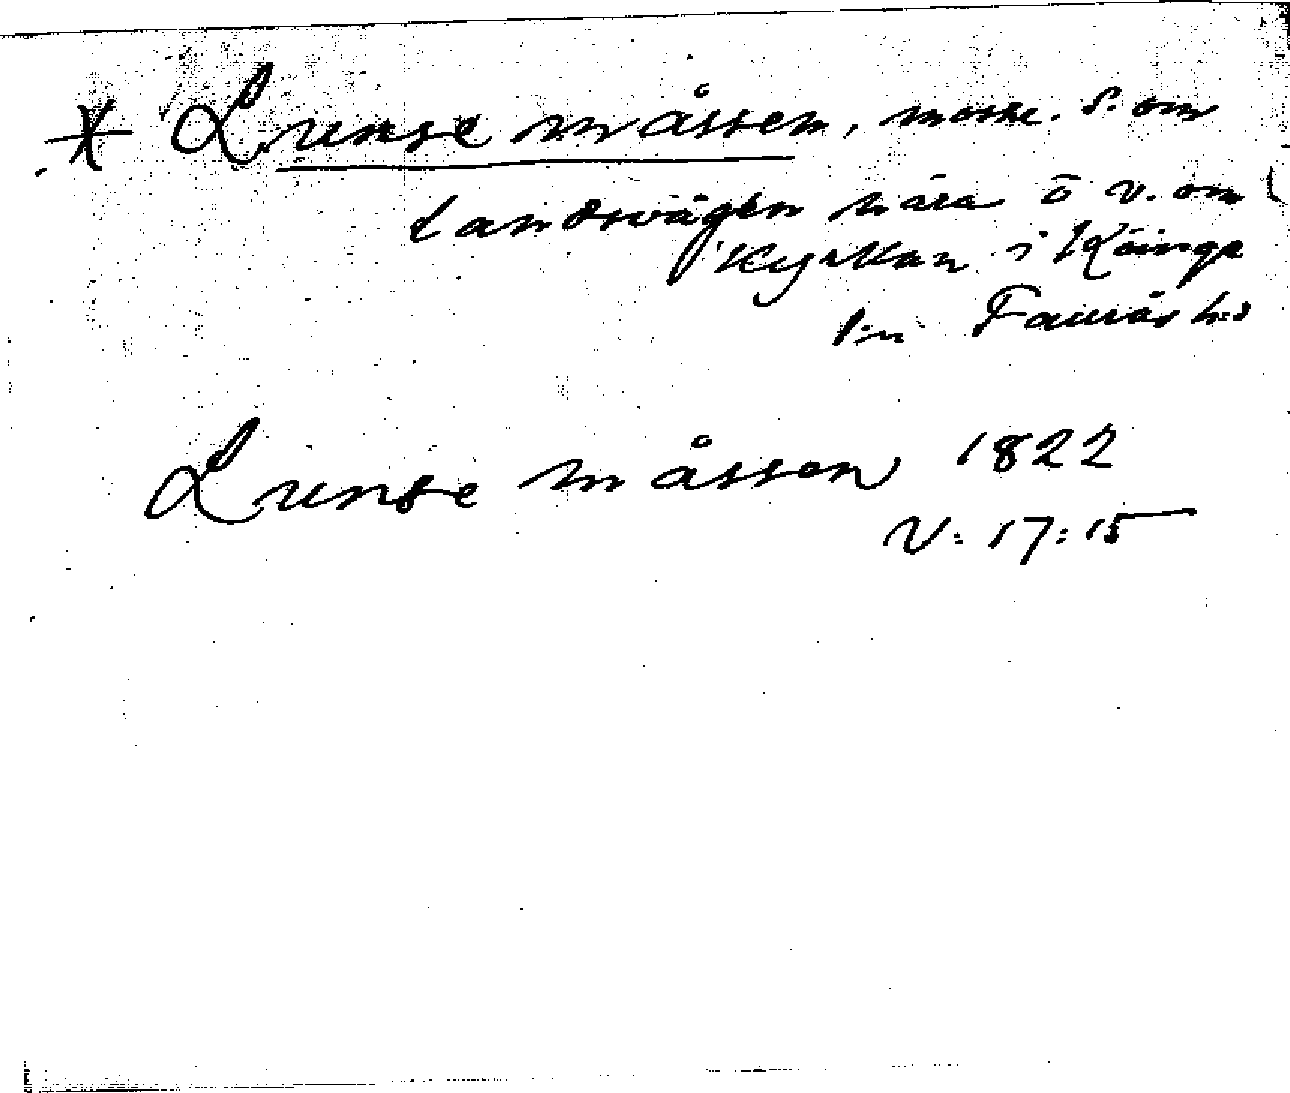 * Lunse måssen, mosse. S. om
landsvägen nära ö v. om
kyrkan i Köinge
s:n Faurås h:d
Lunse måssen 1822
V: 17: 15